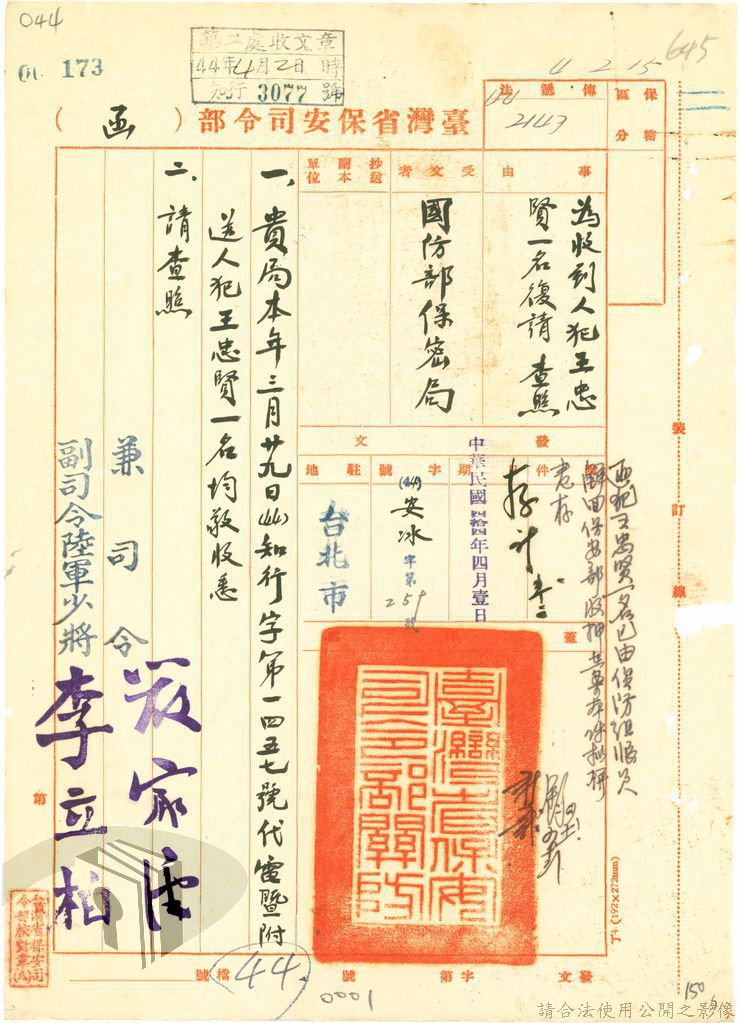 044
173
第二處收文章
44年4月2日 時
知行 3077 號
645
4 2 15
臺灣省保安司令部（函）
保區
密分
傳遞法
2143
事由
為收到人犯王忠
賢一名復請 查照
受文者
國防部保密局
抄送副本單位
發文
附件
存卅
日期
中華民國四拾四年四月壹日
字號
(44)安冰字第259號
駐地
台北市
一、貴局本年三月廿九日(44)知行字第一四五七號代電暨附
送人犯王忠賢一名均敬收悉
二、請查照
兼司令
副司令陸軍少將 李立柏
臺灣省保安司令部關防
裝訂線
第
檔號
44
0001
發文 字第 號
J4 (192×272mm)
台灣省保安司
令部校對章(八)
150
請合法使用公開之影像